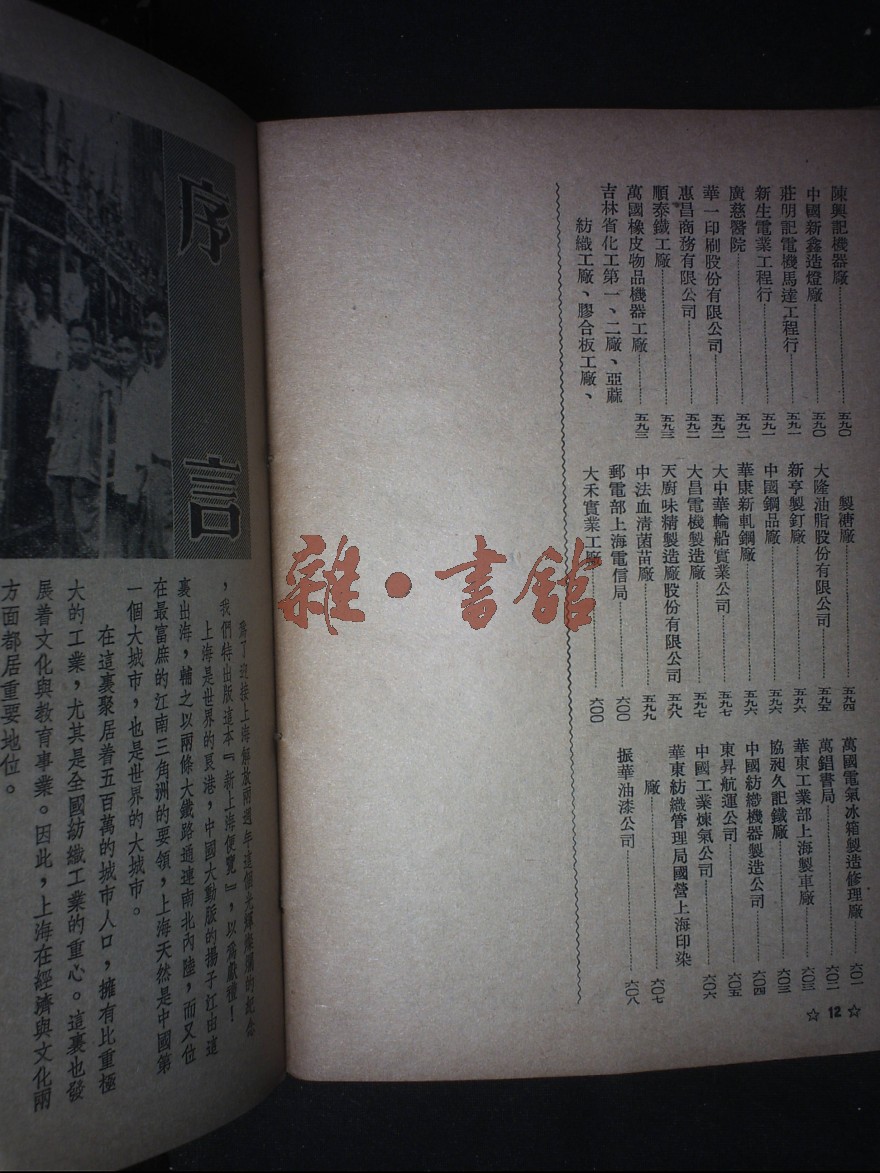 陳興記機器廠 五九〇
中國新鑫造燈廠 五九〇
莊明記電機馬達工程行 五九一
新生電業工程行 五九一
廣慈醫院 五九二
華一印刷股份有限公司 五九二
惠昌商務有限公司 五九二
順泰鐵工廠 五九三
萬國橡皮物品機器工廠 五九三
吉林省化工第一、二廠、亞蔴
紡織工廠、膠合板工廠、
製漘廠 五九四
大隆油脂股份有限公司 五九五
新亨製釘廠 五九六
中國鋼品廠 五九六
華康新軋鋼廠 五九六
大中華輪船實業公司 五九七
大昌電機製造廠 五九七
天廚味精製造廠股份有限公司 五九八
中法血清菌苗廠 五九九
郵電部上海電信局 六〇〇
大禾實業工廠 六〇〇
萬國電氣冰箱製造修理廠 六〇一
萬錩書局 六〇二
華東工業部上海製車廠 六〇三
協昶久記鐵廠 六〇三
中國紡織機器製造公司 六〇四
東昇航運公司 六〇五
中國工業煉氣公司 六〇六
華東紡織管理局國營上海印染
廠 六〇七
振華油漆公司 六〇八
☆ 12 ☆
雜·書館
序言
爲了迎接上海解放兩週年這個光輝燦爛的紀念
，我們特出版這本『新上海便覽』，以爲獻禮！
上海是世界的良港，中國大動脈的揚子江由這
裏出海，輔之以兩條大鐵路通連南北內陸，而又位
在最富庶的江南三角洲的要領，上海天然是中國第
一個大城市，也是世界的大城市。
在這裏聚居着五百萬的城市人口，擁有比重極
大的工業，尤其是全國紡織工業的重心。這裏也發
展着文化與教育事業。因此，上海在經濟與文化兩
方面都居重要地位。